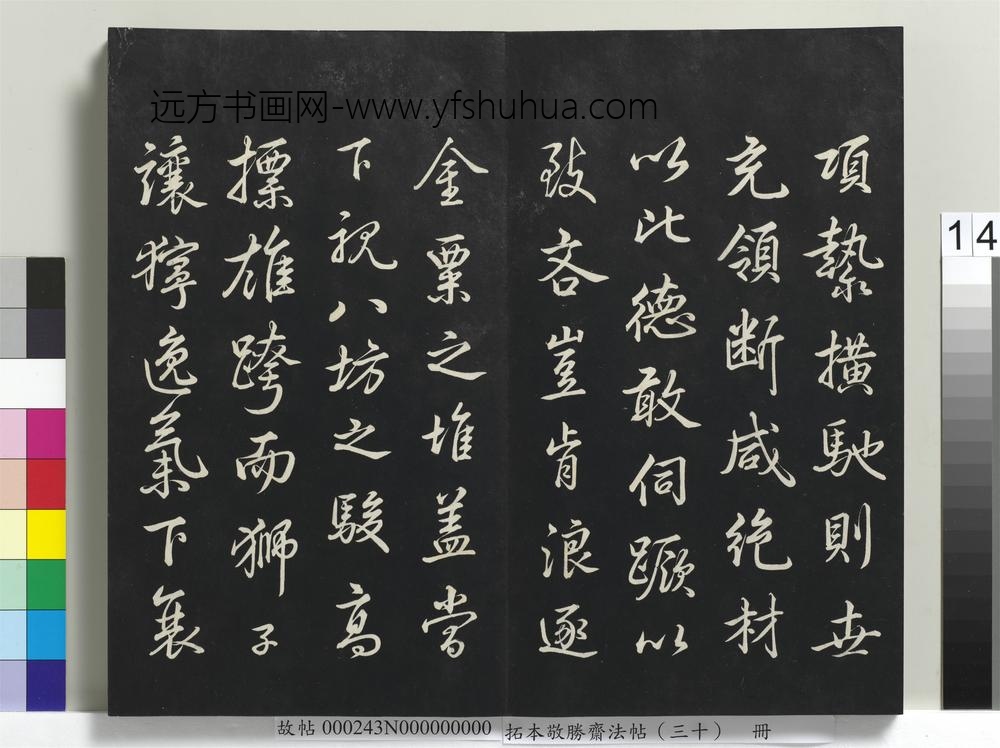 远方书画网-www.yfshuhua.com
項縶橫馳則世
充領断咸絶材
以此德敢伺蹶以
致吝豈肯浪逐
金粟之堆盖嘗
下視八坊之駿高
摽雄跨而狮子
讓獰逸氣下衰
14
故帖 000243N000000000
拓本敬勝齋法帖（三十） 冊